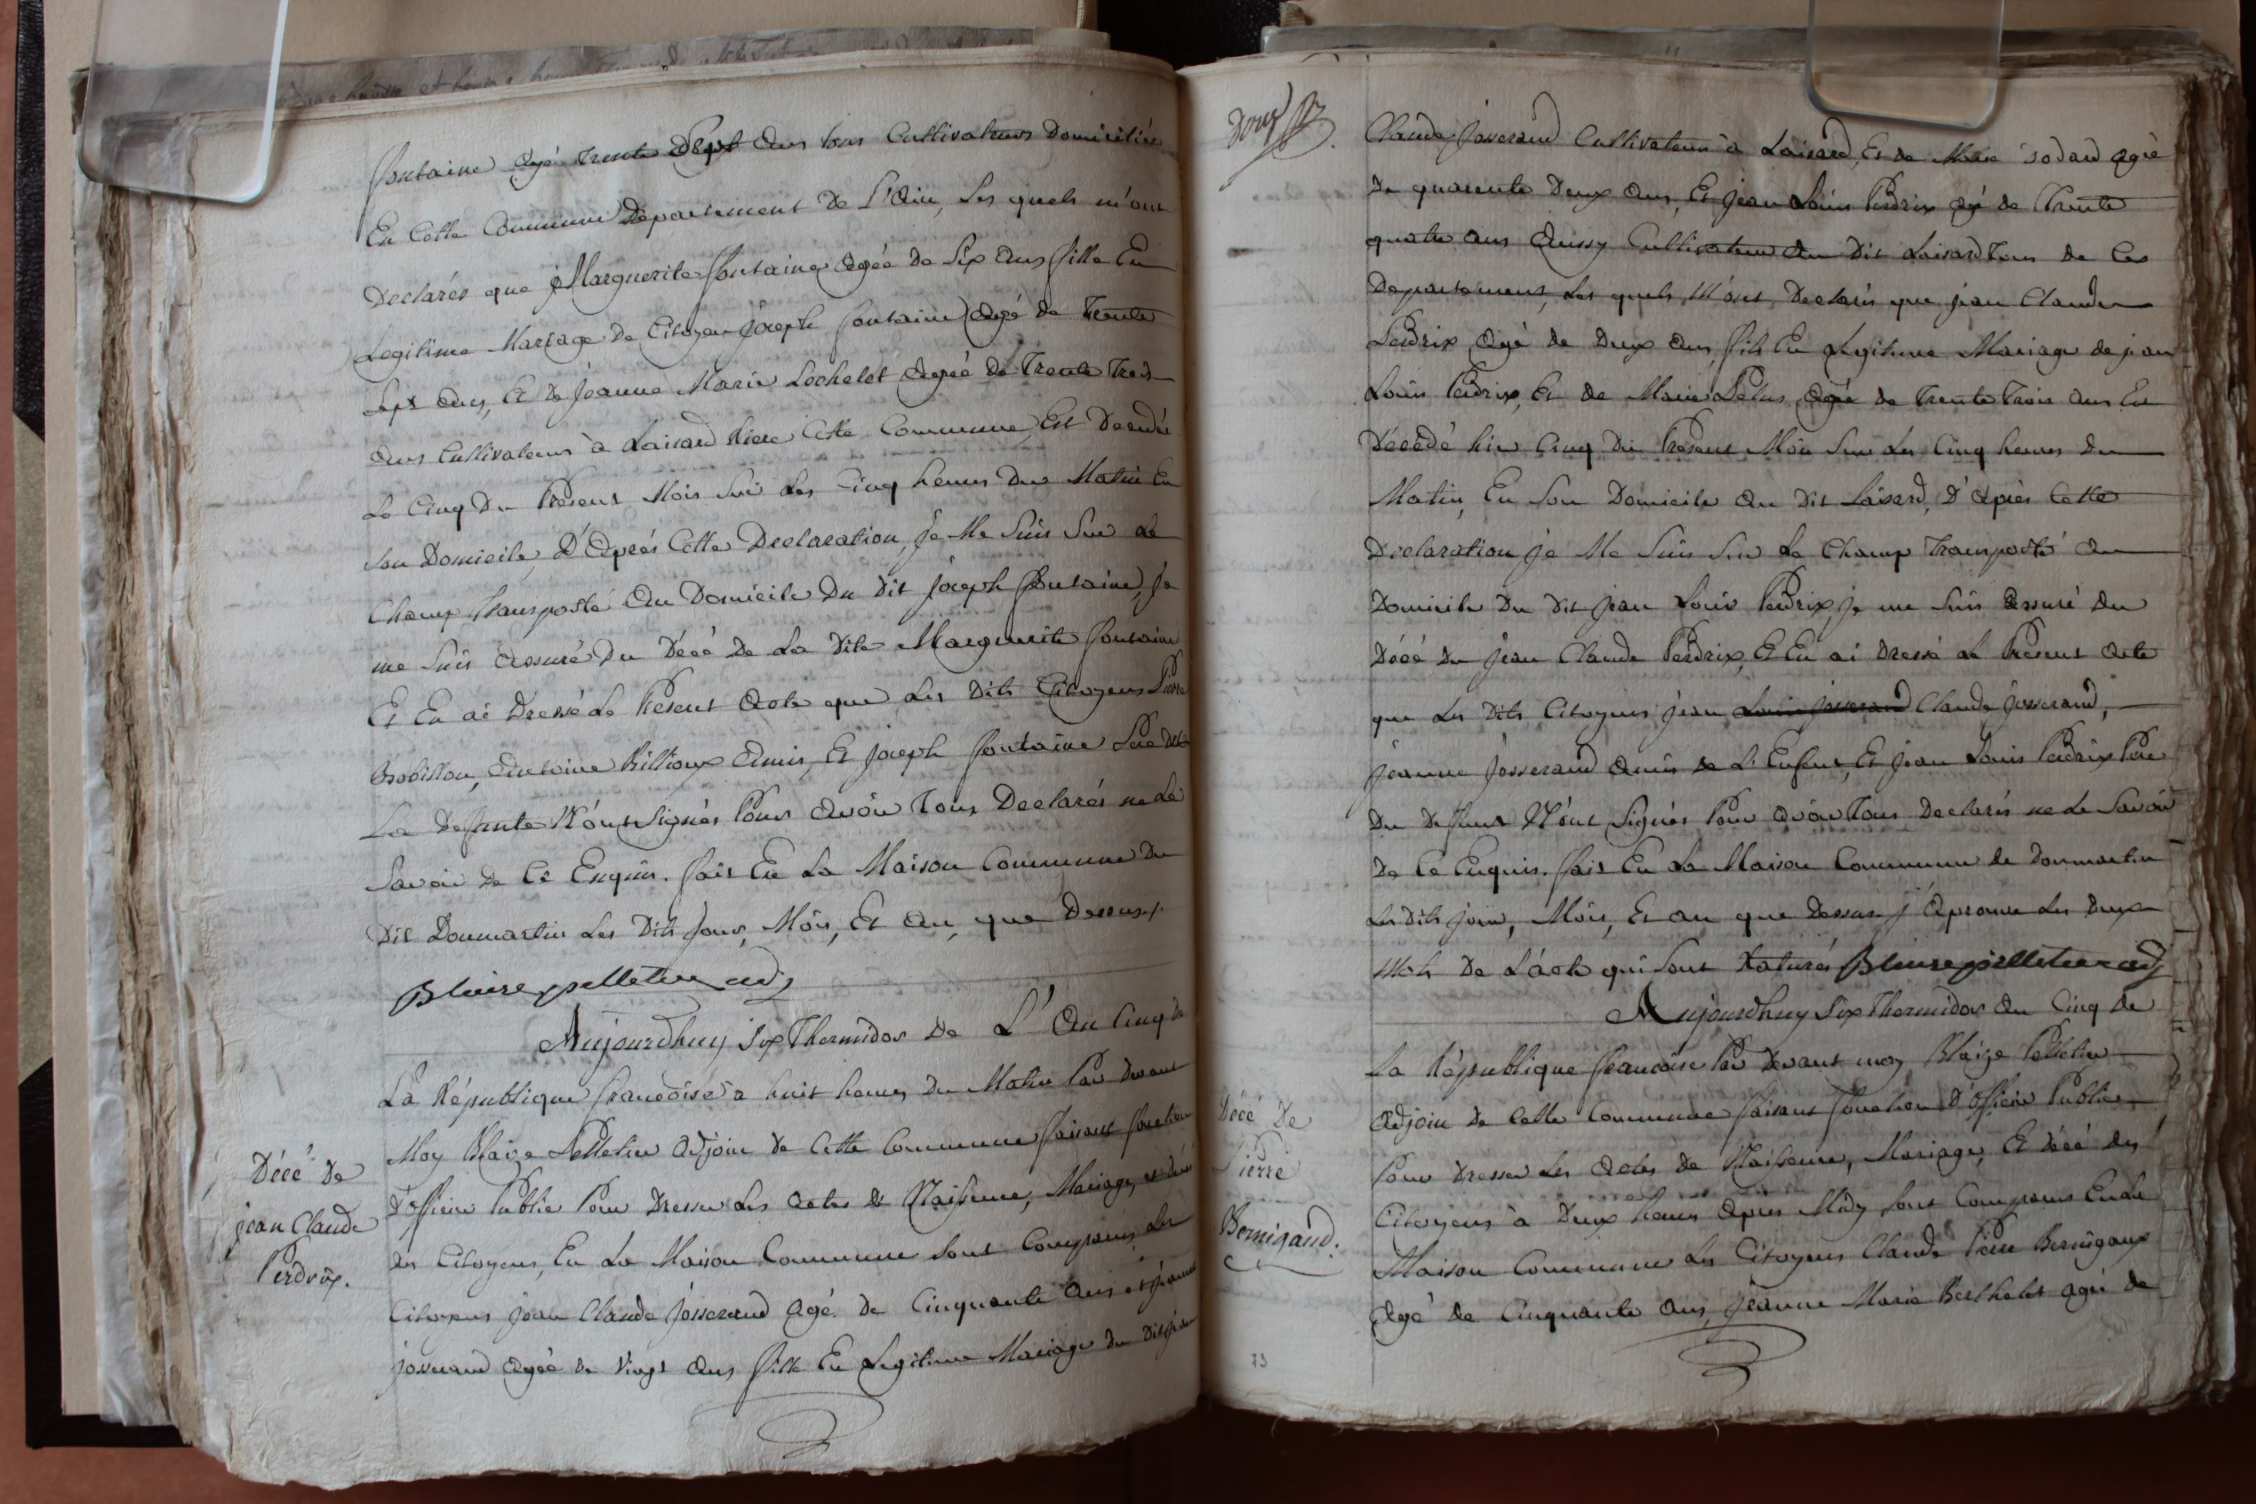 fontaine agé trente Sept ans tous Cultivateurs Domiciliés
En Cette Commune Departement De L'Ain, Les quels m'ont
Declarés que Marguerite fontaine agée de Six ans fille En
Legitime Mariage De Citoyen joseph fontaine agé de Trente
Sept ans, Et De jeanne Marie agée de Trente Trois
ans Cultivateurs à Laisard Riere Cette Commune, Est Decedée
Le Cinq Du Présent Mois Sur Les Cinq heures Du Matin En
Son Domicile, D'Après Cette Declaration, je Me Suis Sur Le
Champ Transporté Au Domicile Du Dit joseph fontaine, je
me Suis assuré Du Décé De La Dite Marguerite fontaine
Et En ai Dressé Le Présent Acte que Les Dits Citoyens Pierre
Robillon, Antoine Billioux Amis, Et joseph fontaine Pere De
La Defunte N'ont Signés Pour Avoir Tous Declarés ne Le
Savoir De Ce Enquis. fait En La Maison Commune Du
Dit Donmartin Les Dits Jour, Mois, Et An, que Dessus./.
Blaise pelletier adj
Aujourdhuy Six Thermidor De L'An Cinq De
La République françoise à huit heures Du Matin Par Devant
Moy Blaize Pelletier Adjoin De Cette Commune faisant fonction
D'officier Public Pour Dresser Les Actes De Naissance, Mariage, et décé
Des Citoyens, En La Maison Commune Sont Comparus Les
Citoyens jean Claude josserand Agé De Cinquante Ans et jeanne
josserand agée De Vingt Ans fille En Legitime Mariage Du Dit jean
Décé De
jean Claude
Perdrix.
Claude josserand Cultivateur à Laisard, Et De Marie agée
De quarente Deux ans, Et jean Louis Perdrix agé de Trente
quatre ans Aussy Cultivateur Au Dit Laisard Tous De Ces
Departement, Les quels M'ont Declarés que jean Claude
Perdrix Agé De Deux ans, fils En Legitime Mariage De jean
Louis Perdrix, Et De Marie Agée De Trente Trois ans Est
Décédé hier Cinq Du Présent Mois Sur Les Cinq heures Du
Matin, En Son Domicile Au Dit Laisard, D'Après Cette
Declaration je Me Suis Sur Le Champ Transporté Au
Domicile Du Dit jean Louis Perdrix, je me Suis Assuré Du
Décé Du jean Claude Perdrix, Et En ai Dressé Le Présent Acte
que Les Dits Citoyens jean Louis josserand Claude josserand,
jeanne josserand Amis de L'Enfant, Et jean Louis Perdrix Pere
Du Deffunt N'ont Signés Pour Avoir Tous Declarés ne Le Savoir
De Ce Enquis. fait En La Maison Commune de Donmartin
Les Dits jour, Mois, Et an que Dessus j'Aprouve Les Deux
Mots De L'acte qui Sont Raturés Blaise pelletier adj
Aujourdhuy Six Thermidor An Cinq De
La République françoise Par Devant moy Blaize Pelletier
Adjoin De Cette Commune faisant fonction D'officier Public
Pour Dresser Les Actes De Naissance, Mariage, Et décé Des
Citoyens à Deux heures Après Midy Sont Comparus En La
Maison Commune Les Citoyens Claude Pierre Bernigaux
Agé De Cinquante Ans, jeanne Marie Berthelet agée De
Décé De
Pierre
Bernigaud.
73